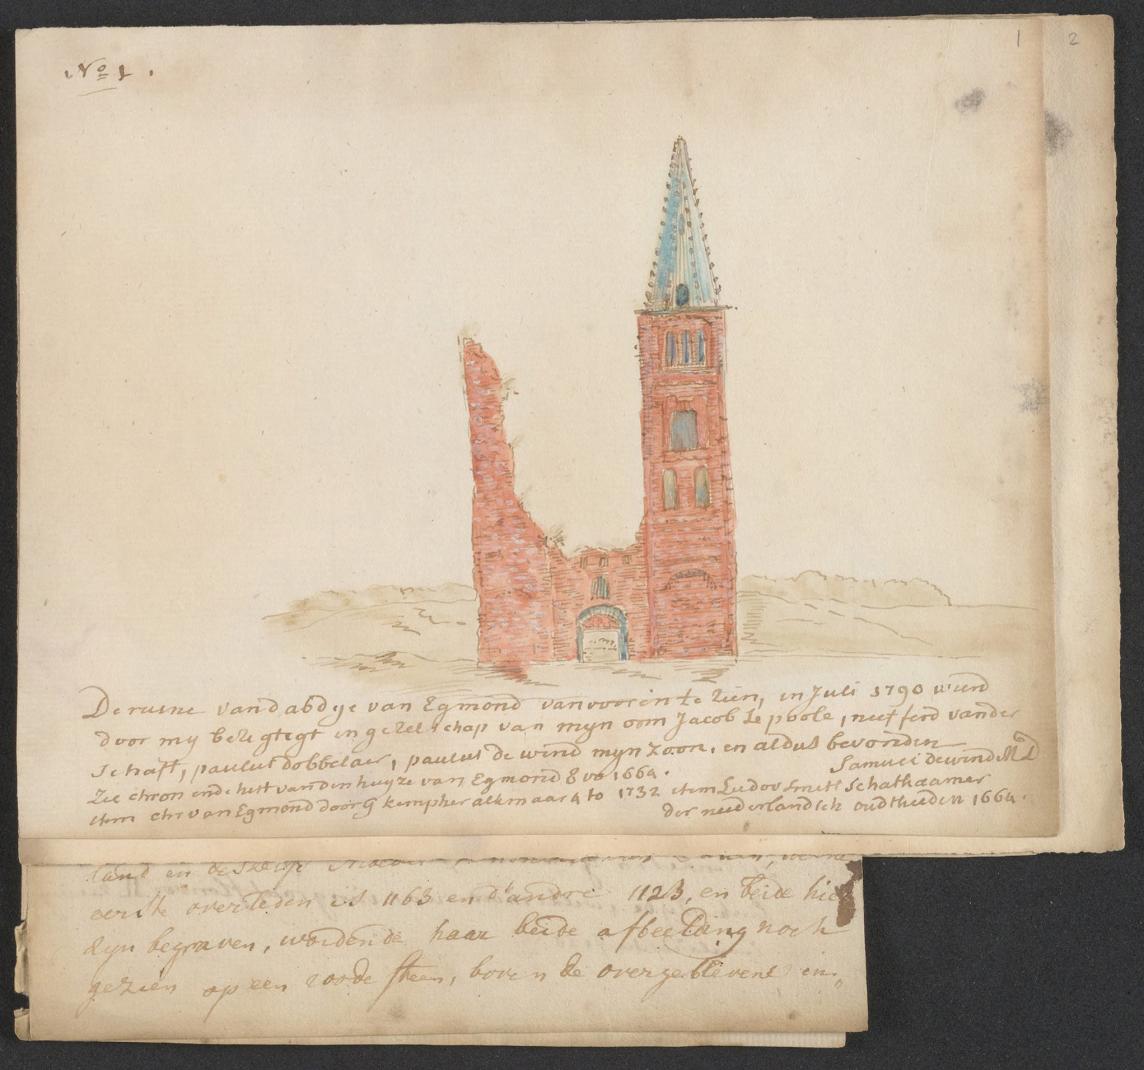 No 1.
1 2
De ruine vand abdye van Egmond van vooren te zien, in Juli 1790 wierd
door my bezigtigt in gezelschap van myn oom Jacob Le poole, neef ferd vander
schaft, paulus dobbelaer, paulus de wind myn zoon, en aldus bevonden
Samuel de wind M D
Zie chron ende hist van den huyze van Egmond 8vo 1664. item Ludov Smits Schatkaamer
item chr van Egmond door G kempher alkmaar 4to 1732 der neederlandsch oudtheeden 1664.
land en
eerste overleden is 1163 en d'andre 1123, en beide hier
zyn begraven, wordende haar beide afbeelding noch
gezien op een roode steen, boven de overgeblevene in